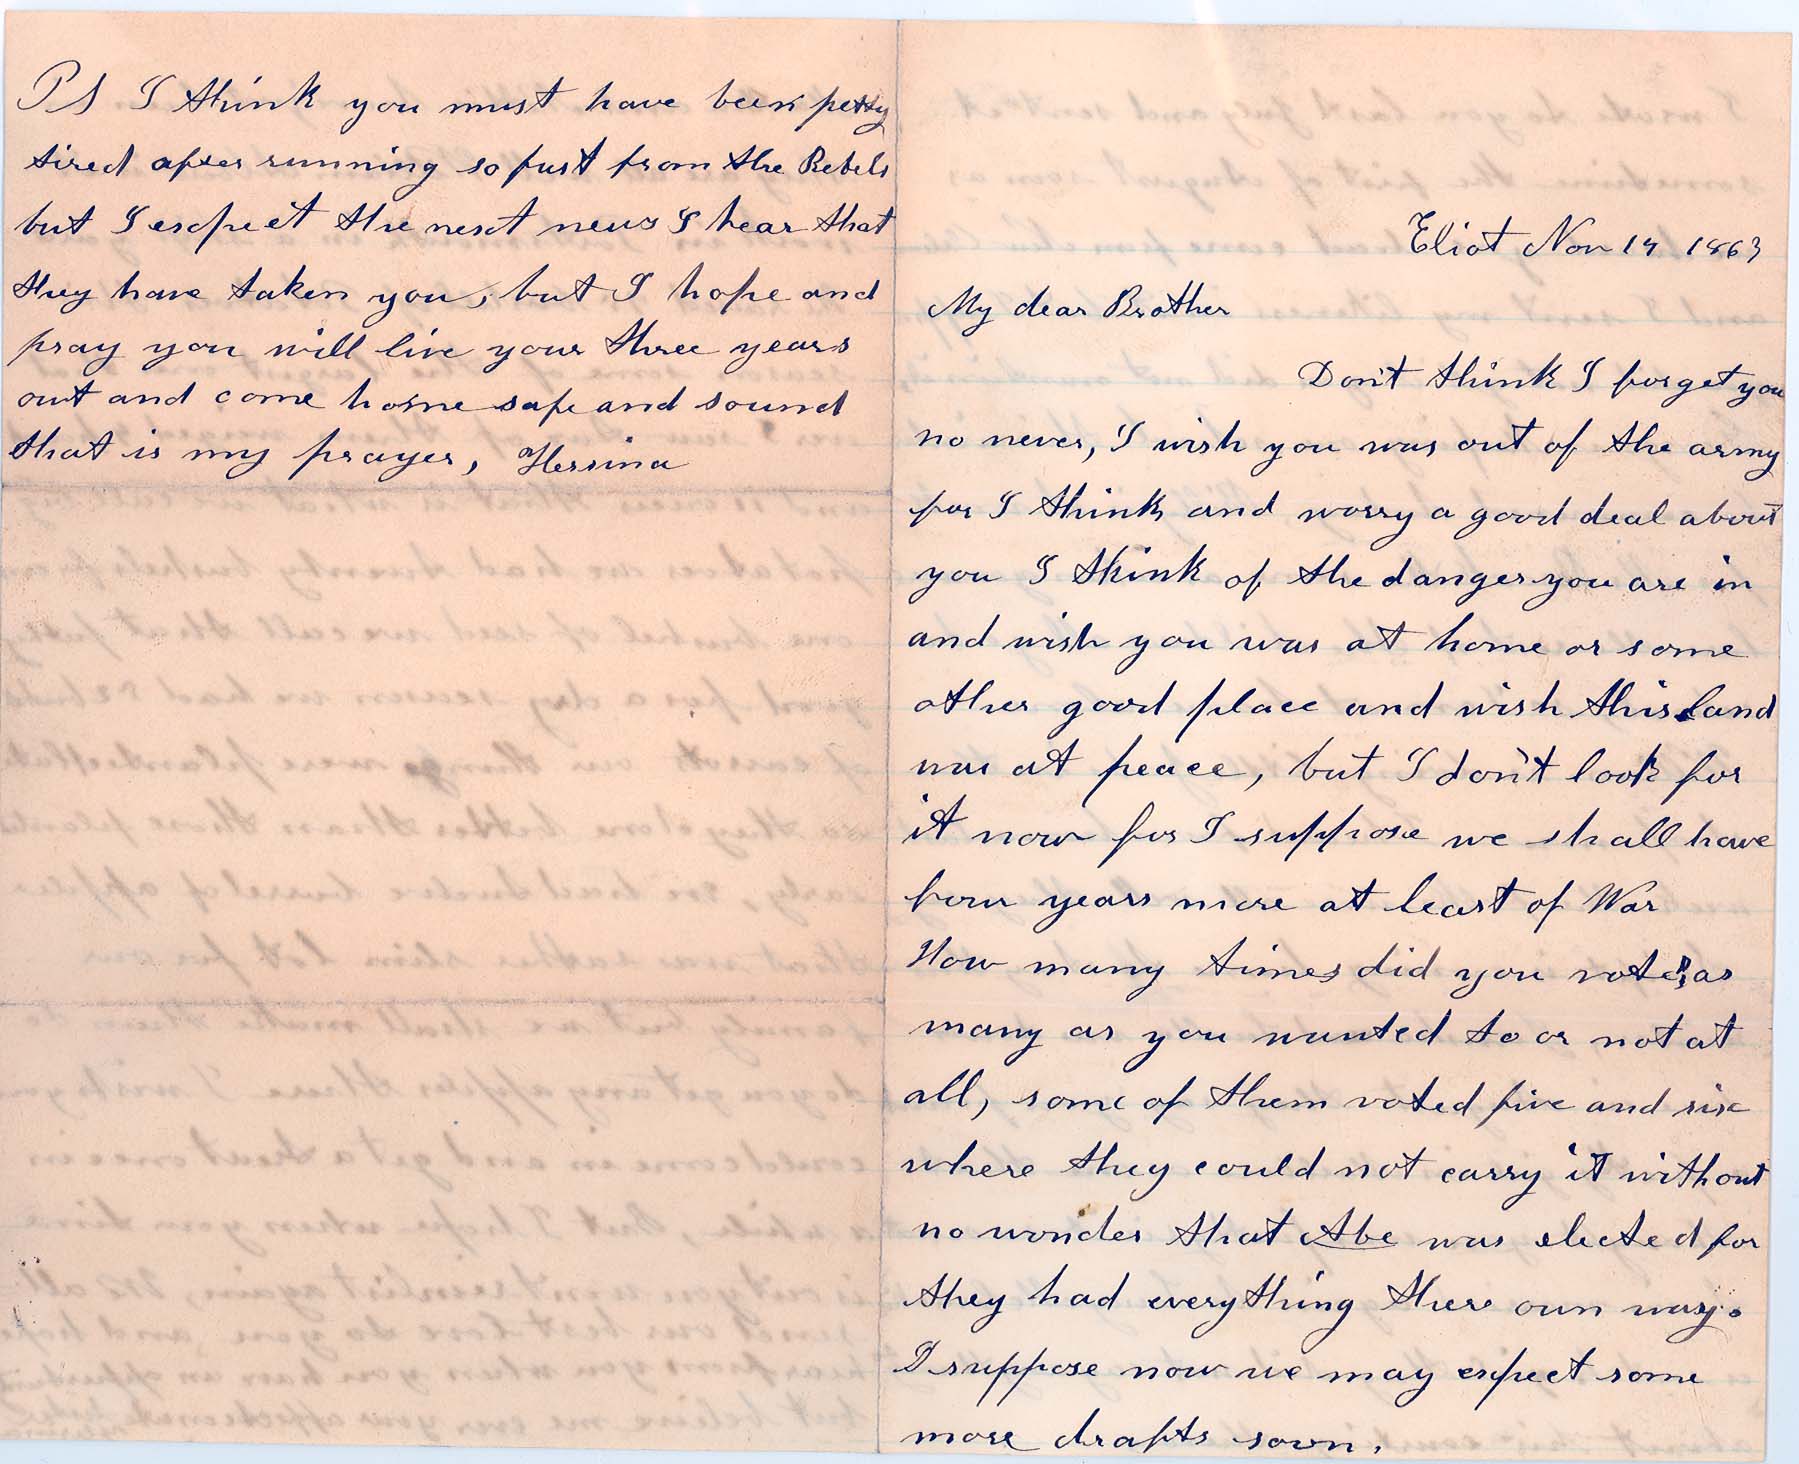 Eliot Nov 14 1863
My dear Brother
Don't think I forget you
no never, I wish you was out of the army
for I think and worry a good deal about
you I think of the danger you are in
and wish you was at home or some
other good place and wish this land
was at peace, but I don't look for
it now for I suppose we shall have
four years more at least of War
How many times did you vote, as
many as you wanted to or not at
all, some of them voted five and six
where they could not carry it without
no wonder that Abe was elected for
they had everything there own way.
I suppose now we may expect some
more drafts soon.
PS I think you must have been petty
tired after running so fast from the Rebels
but I expect the next news I hear that
they have taken you, but I hope and
pray you will live your three years
out and come home safe and sound
that is my prayer,